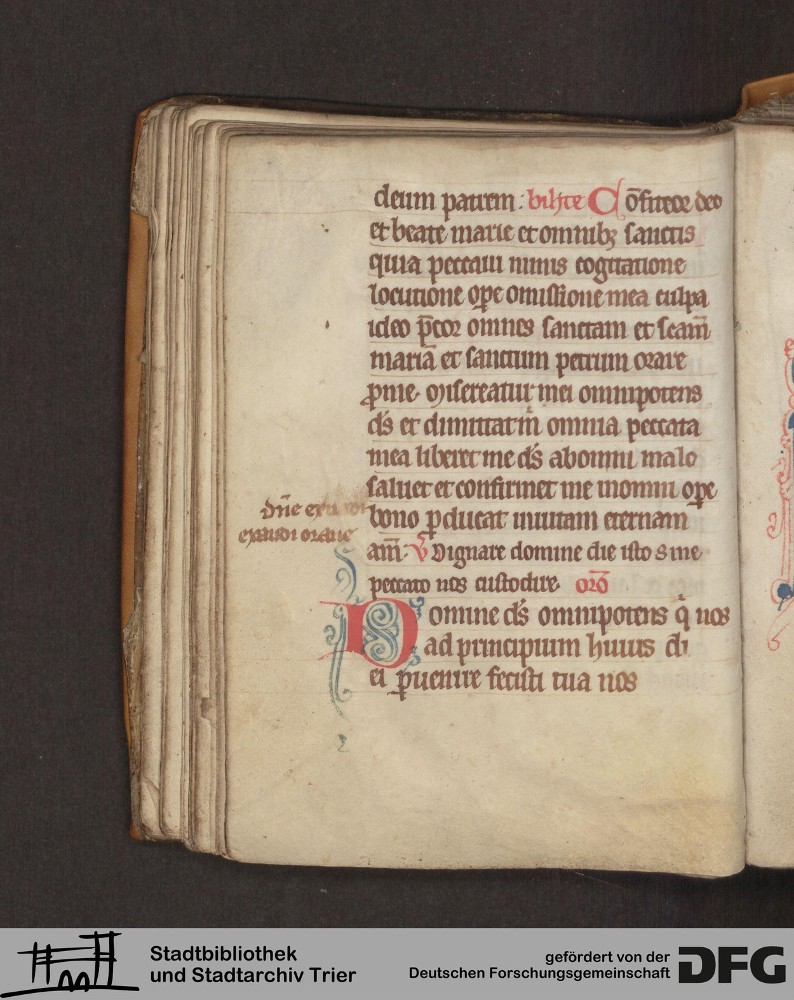 deum patrem: Cōfiteor deo
et beate marie et omnibꝫ sanctis
quia peccaui nimis cogitatione
locutione oꝑe omissione mea culpa
ideo p̄cor omnes sanctam et scam̄
mariā et sanctum petrum orare
ꝓ me. Misereatur mei omnipotens
ds̄ et dimittat m̄ omnia peccata
mea liberet me ds̄ ab omni malo
saluet et confirmet me in omni oꝑe
dn̄e exaudi
bono ꝑducat in uitam eternam
exaudi orac̄
am̄. ℣ Dignare domine die isto sine
peccato nos custodire. orō
Domine ds̄ omnipotens q̄ nos
ad principium huius di
ei ꝑuenire fecisti tua nos
Stadtbibliothek
und Stadtarchiv Trier
gefördert von der
Deutschen Forschungsgemeinschaft
DFG